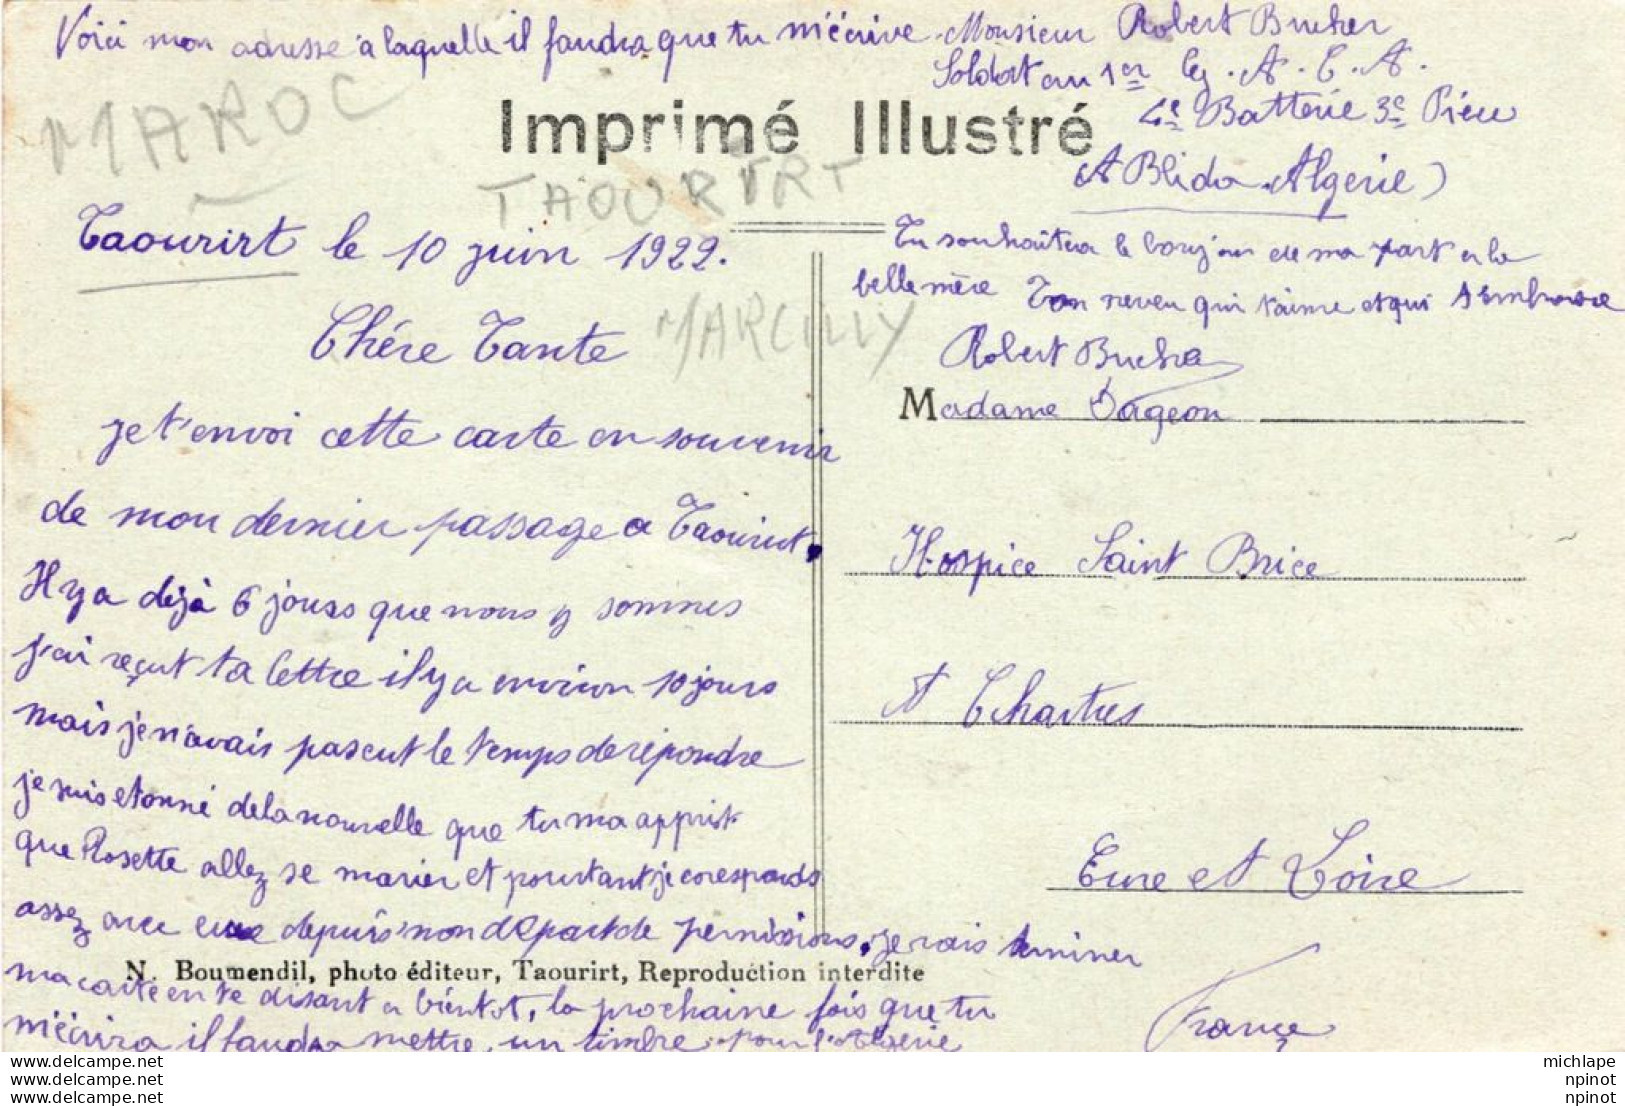 Voici mon adresse à laquelle il faudra que tu m'écrive. Monsieur Robert Bucher
Soldat au 1er
4e Batterie 3e Pièce
A Blida. Algerie)
MAROC
Imprimé Illustré
TAOURIRT
Taourirt le 10 juin 1922.
MARCILLY
Chére Tante
je t'envoi cette carte en souvenir
de mon dernier passage a Taourirt,
Il y a déjà 6 jours que nous y sommes
j'ai reçut ta lettre il y a environ 10 jours
mais je n'avais pas eut le temps de répondre
je suis etonné de la nouvelle que tu ma apprit
que Rosette allez se marier et pourtant je coresponds
assez avec eux depuis mon départ de permissions, je vais terminer
ma carte en te disant a bientot, la prochaine fois que tu
m'écrira il faudra mettre un timbre pour l'Algerie
N. Boumendil, photo éditeur, Taourirt, Reproduction interdite
Tu souhaitera le bonjour de ma part a la
belle mère Ton neveu qui t'aime et qui t'embrasse
Robert Bucher
Madame Dageon
Hospice Saint Brice
A Chartres
Eure et Loire
France
www.delcampe.net
www.delcampe.net
www.delcampe.net
michlape
npinot
npinot